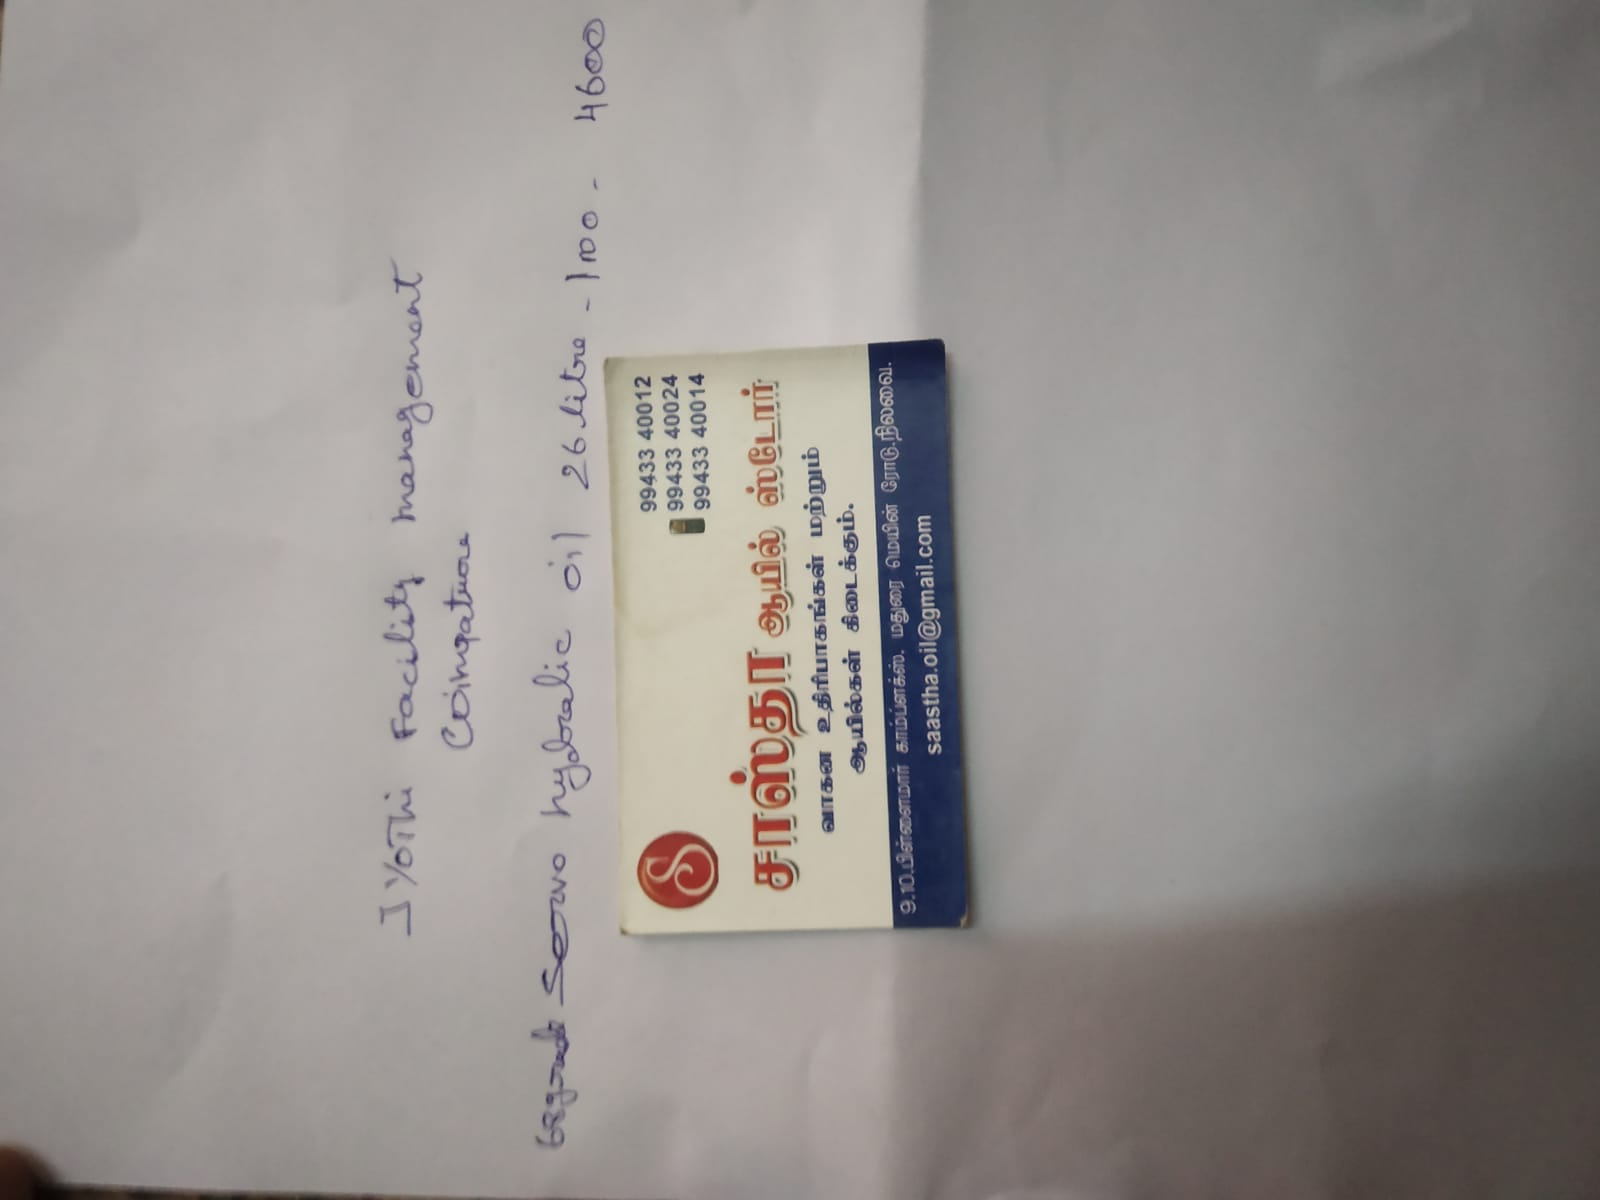 JYOThi Facility management
Coimqatuore
68grade Servo hydralic oil 26 litre - 100 - 4600
S
99433 40012
99433 40024
99433 40014
சாஸ்தா ஆயில் ஸ்டோர்
வாகன உதிரிபாகங்கள் மற்றும்
ஆயில்கள் கிடைக்கும்.
9.10.பிள்ளைமார் காம்ப்ளக்ஸ். மதுரை மெயின் ரோடு.நிலவை.
saastha.oil@gmail.com